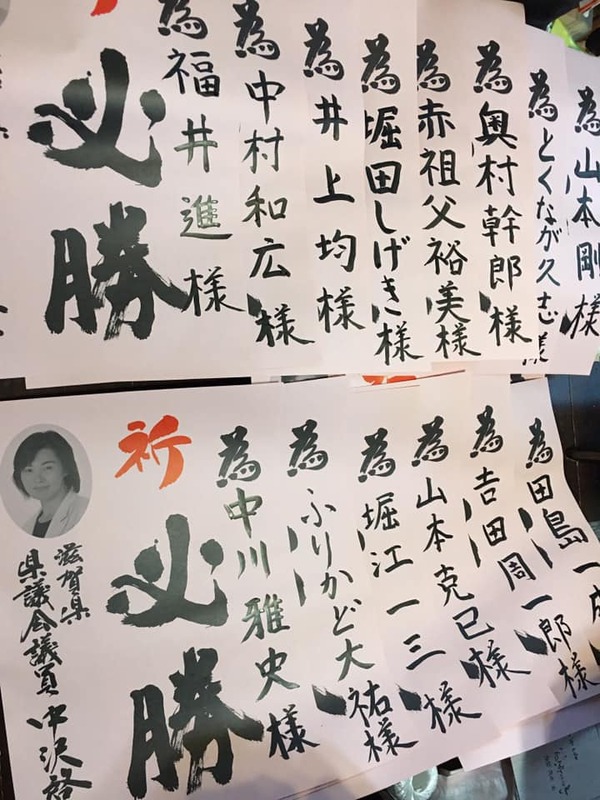 為山本剛様
為とくなが久志様
為奥村幹郎様
為赤祖父裕美様
為堀田しげき様
為井上均様
為中村和広様
為福井進様
必勝
為田島一成
為吉田周一郎様
為山本克巳様
為堀江一三様
為ふりかど大祐様
為中川雅史様
祈
必勝
滋賀県
県議会議員 中沢啓